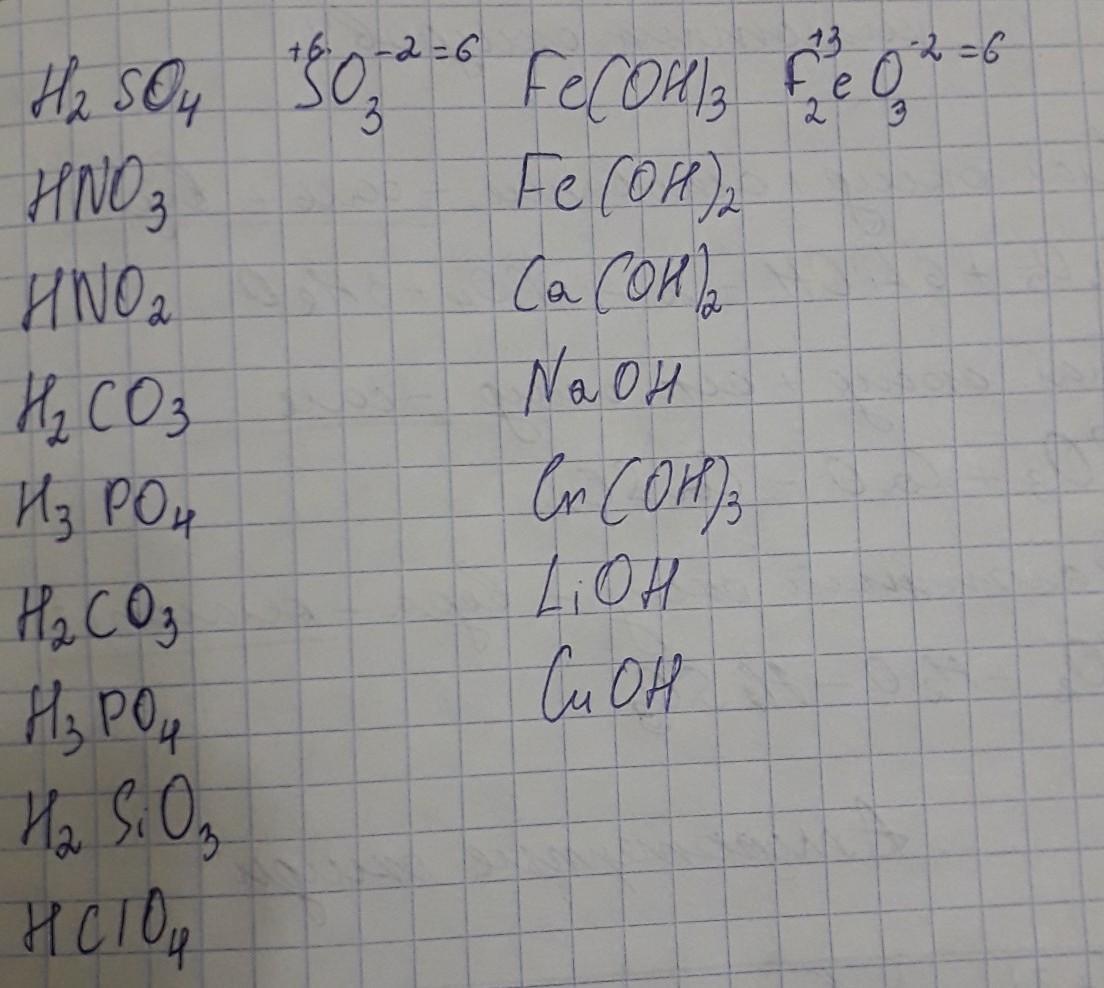 H₂SO₄ ⁺⁶SO₃⁻² = 6 Fe(OH)₃ F₂⁺³eO₃⁻² = 6
HNO₃ Fe(OH)₂
HNO₂ Ca(OH)₂
H₂CO₃ NaOH
H₃PO₄ Cr(OH)₃
H₂CO₃ LiOH
H₃PO₄ CuOH
H₂SiO₃
HClO₄